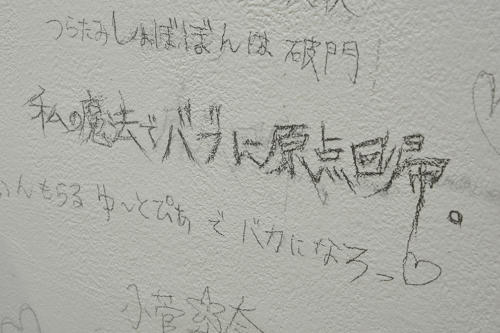 つらたみしょぼぼんは破門
私の魔法でバブに原点回帰。
んもらるゆ〜とぴあでバカになろっ♡
小菅
太